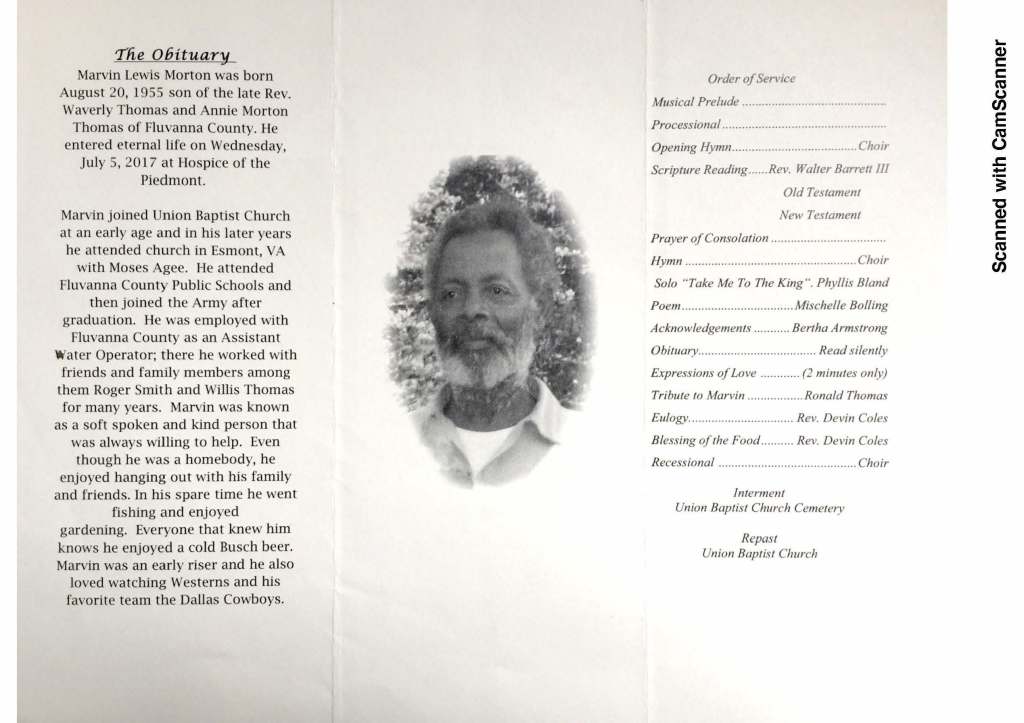 The Obituary
Marvin Lewis Morton was born
August 20, 1955 son of the late Rev.
Waverly Thomas and Annie Morton
Thomas of Fluvanna County. He
entered eternal life on Wednesday,
July 5, 2017 at Hospice of the
Piedmont.
Marvin joined Union Baptist Church
at an early age and in his later years
he attended church in Esmont, VA
with Moses Agee. He attended
Fluvanna County Public Schools and
then joined the Army after
graduation. He was employed with
Fluvanna County as an Assistant
Water Operator; there he worked with
friends and family members among
them Roger Smith and Willis Thomas
for many years. Marvin was known
as a soft spoken and kind person that
was always willing to help. Even
though he was a homebody, he
enjoyed hanging out with his family
and friends. In his spare time he went
fishing and enjoyed
gardening. Everyone that knew him
knows he enjoyed a cold Busch beer.
Marvin was an early riser and he also
loved watching Westerns and his
favorite team the Dallas Cowboys.
Order of Service
Musical Prelude ............................................
Processional..................................................
Opening Hymn......................................Choir
Scripture Reading......Rev. Walter Barrett III
Old Testament
New Testament
Prayer of Consolation ...................................
Hymn ....................................................Choir
Solo "Take Me To The King". Phyllis Bland
Poem..................................Mischelle Bolling
Acknowledgements ........... Bertha Armstrong
Obituary.................................... Read silently
Expressions of Love ............(2 minutes only)
Tribute to Marvin .................Ronald Thomas
Eulogy................................ Rev. Devin Coles
Blessing of the Food.......... Rev. Devin Coles
Recessional ..........................................Choir
Interment
Union Baptist Church Cemetery
Repast
Union Baptist Church
Scanned with CamScanner